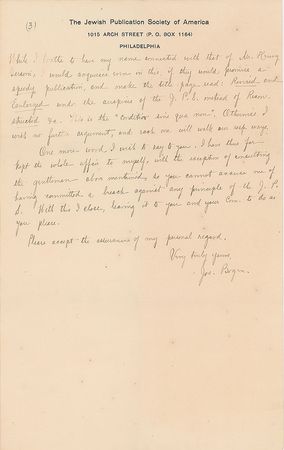 (3)
The Jewish Publication Society of America
1015 ARCH STREET (P. O. BOX 1164)
PHILADELPHIA
While I loathe to have my name connected with that of Mr. Henry
I would acquiesce even in this, if they would promise a
speedy publication, and make the title page read: Revised and
Enlarged under the auspices of the J. P. S. instead of Recon-
structed &c. This is the "condition sine qua non". Otherwise I
wish no further argument, and each one will walk our sep. ways.
One more word I wish to say to you. I have thus far
kept the whole affair to myself, with the exception of consulting
the gentlemen above mentioned, so you cannot accuse me of
having committed a breach against any principle of the J. P.
S. With this I close, leaving it to you and your Com. to do as
you please.
Please accept the assurances of my personal regard.
Very truly yours,
Jos.